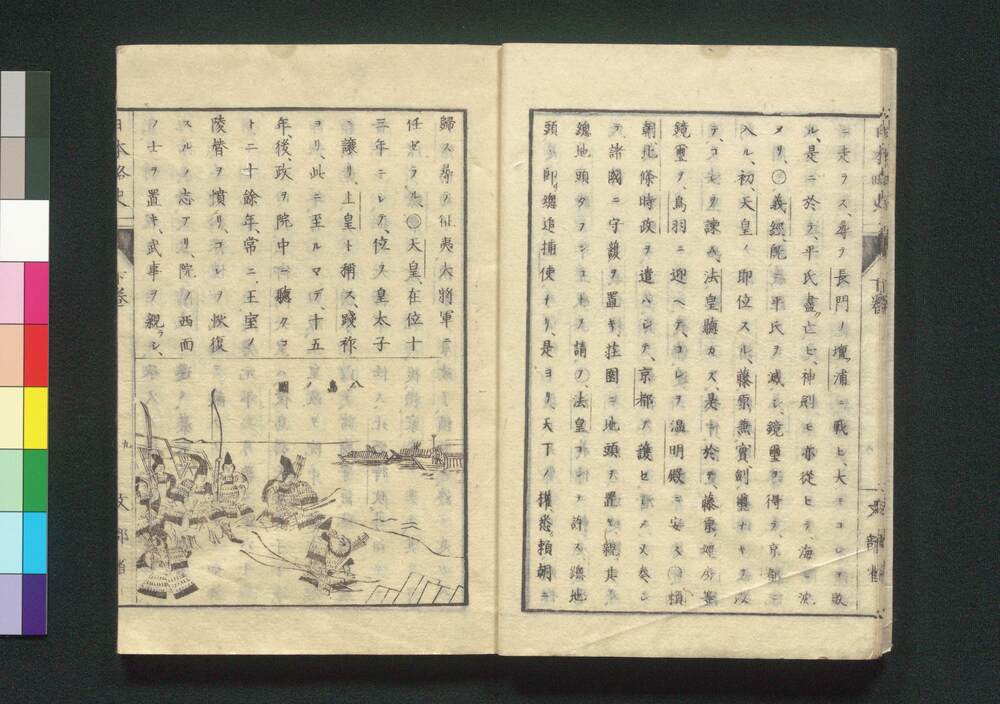 ニ走ラス、尋テ長門ノ壇浦ニ戰ヒ、大ニコレヲ敗
ル、是ニ於テ、平氏盡ク亡ビ、神劍モ亦從ヒテ、海ニ沈
メリ、〇義經、既ニ平氏ヲ滅シ、鏡璽ヲ得テ、京都ニ
入ル、初、天皇ノ即位スル、藤原兼實、劍璽ナキヲ以
テ、コレヲ諫ム、法皇聽カズ、是ニ於テ、藤原經房等
鏡璽ヲ、鳥羽ニ迎ヘテ、コレヲ溫明殿ニ安ス、〇頼
朝、北條時政ヲ遣ハシテ、京都ヲ護セシメ、又奏シ
テ、諸國ニ守護ヲ置キ、荘園ニ地頭ヲ置キ、親、其
總地頭タランコトヲ請フ、法皇コレヲ許ス、總地
頭ハ、即、總追捕使ナリ、是ヨリ天下ノ權、悉頼朝ニ
文部省
歸ス、尋テ征夷大將軍ニ
任ゼラル、〇天皇、在位十
三年ニシテ、位ヲ皇太子
ニ讓リ、上皇ト稱ス、踐祚
ヨリ、此ニ至ルマデ、十五
年、後、政ヲ院中ニ聽クコ
ト二十餘年、常ニ、王室ノ
陵替ヲ憤リ、コレヲ恢復
スルノ志アリ、院ノ西面
ノ士ヲ置キ、武事ヲ親ラシ、
八島ノ圖
日本略史
下卷
九
文部省